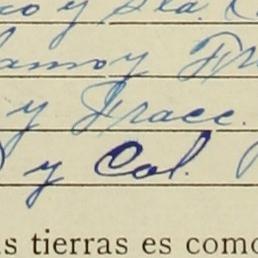 co y Sta. C
lamo y Fr
y Fracc.
y Col.
s tierras es como